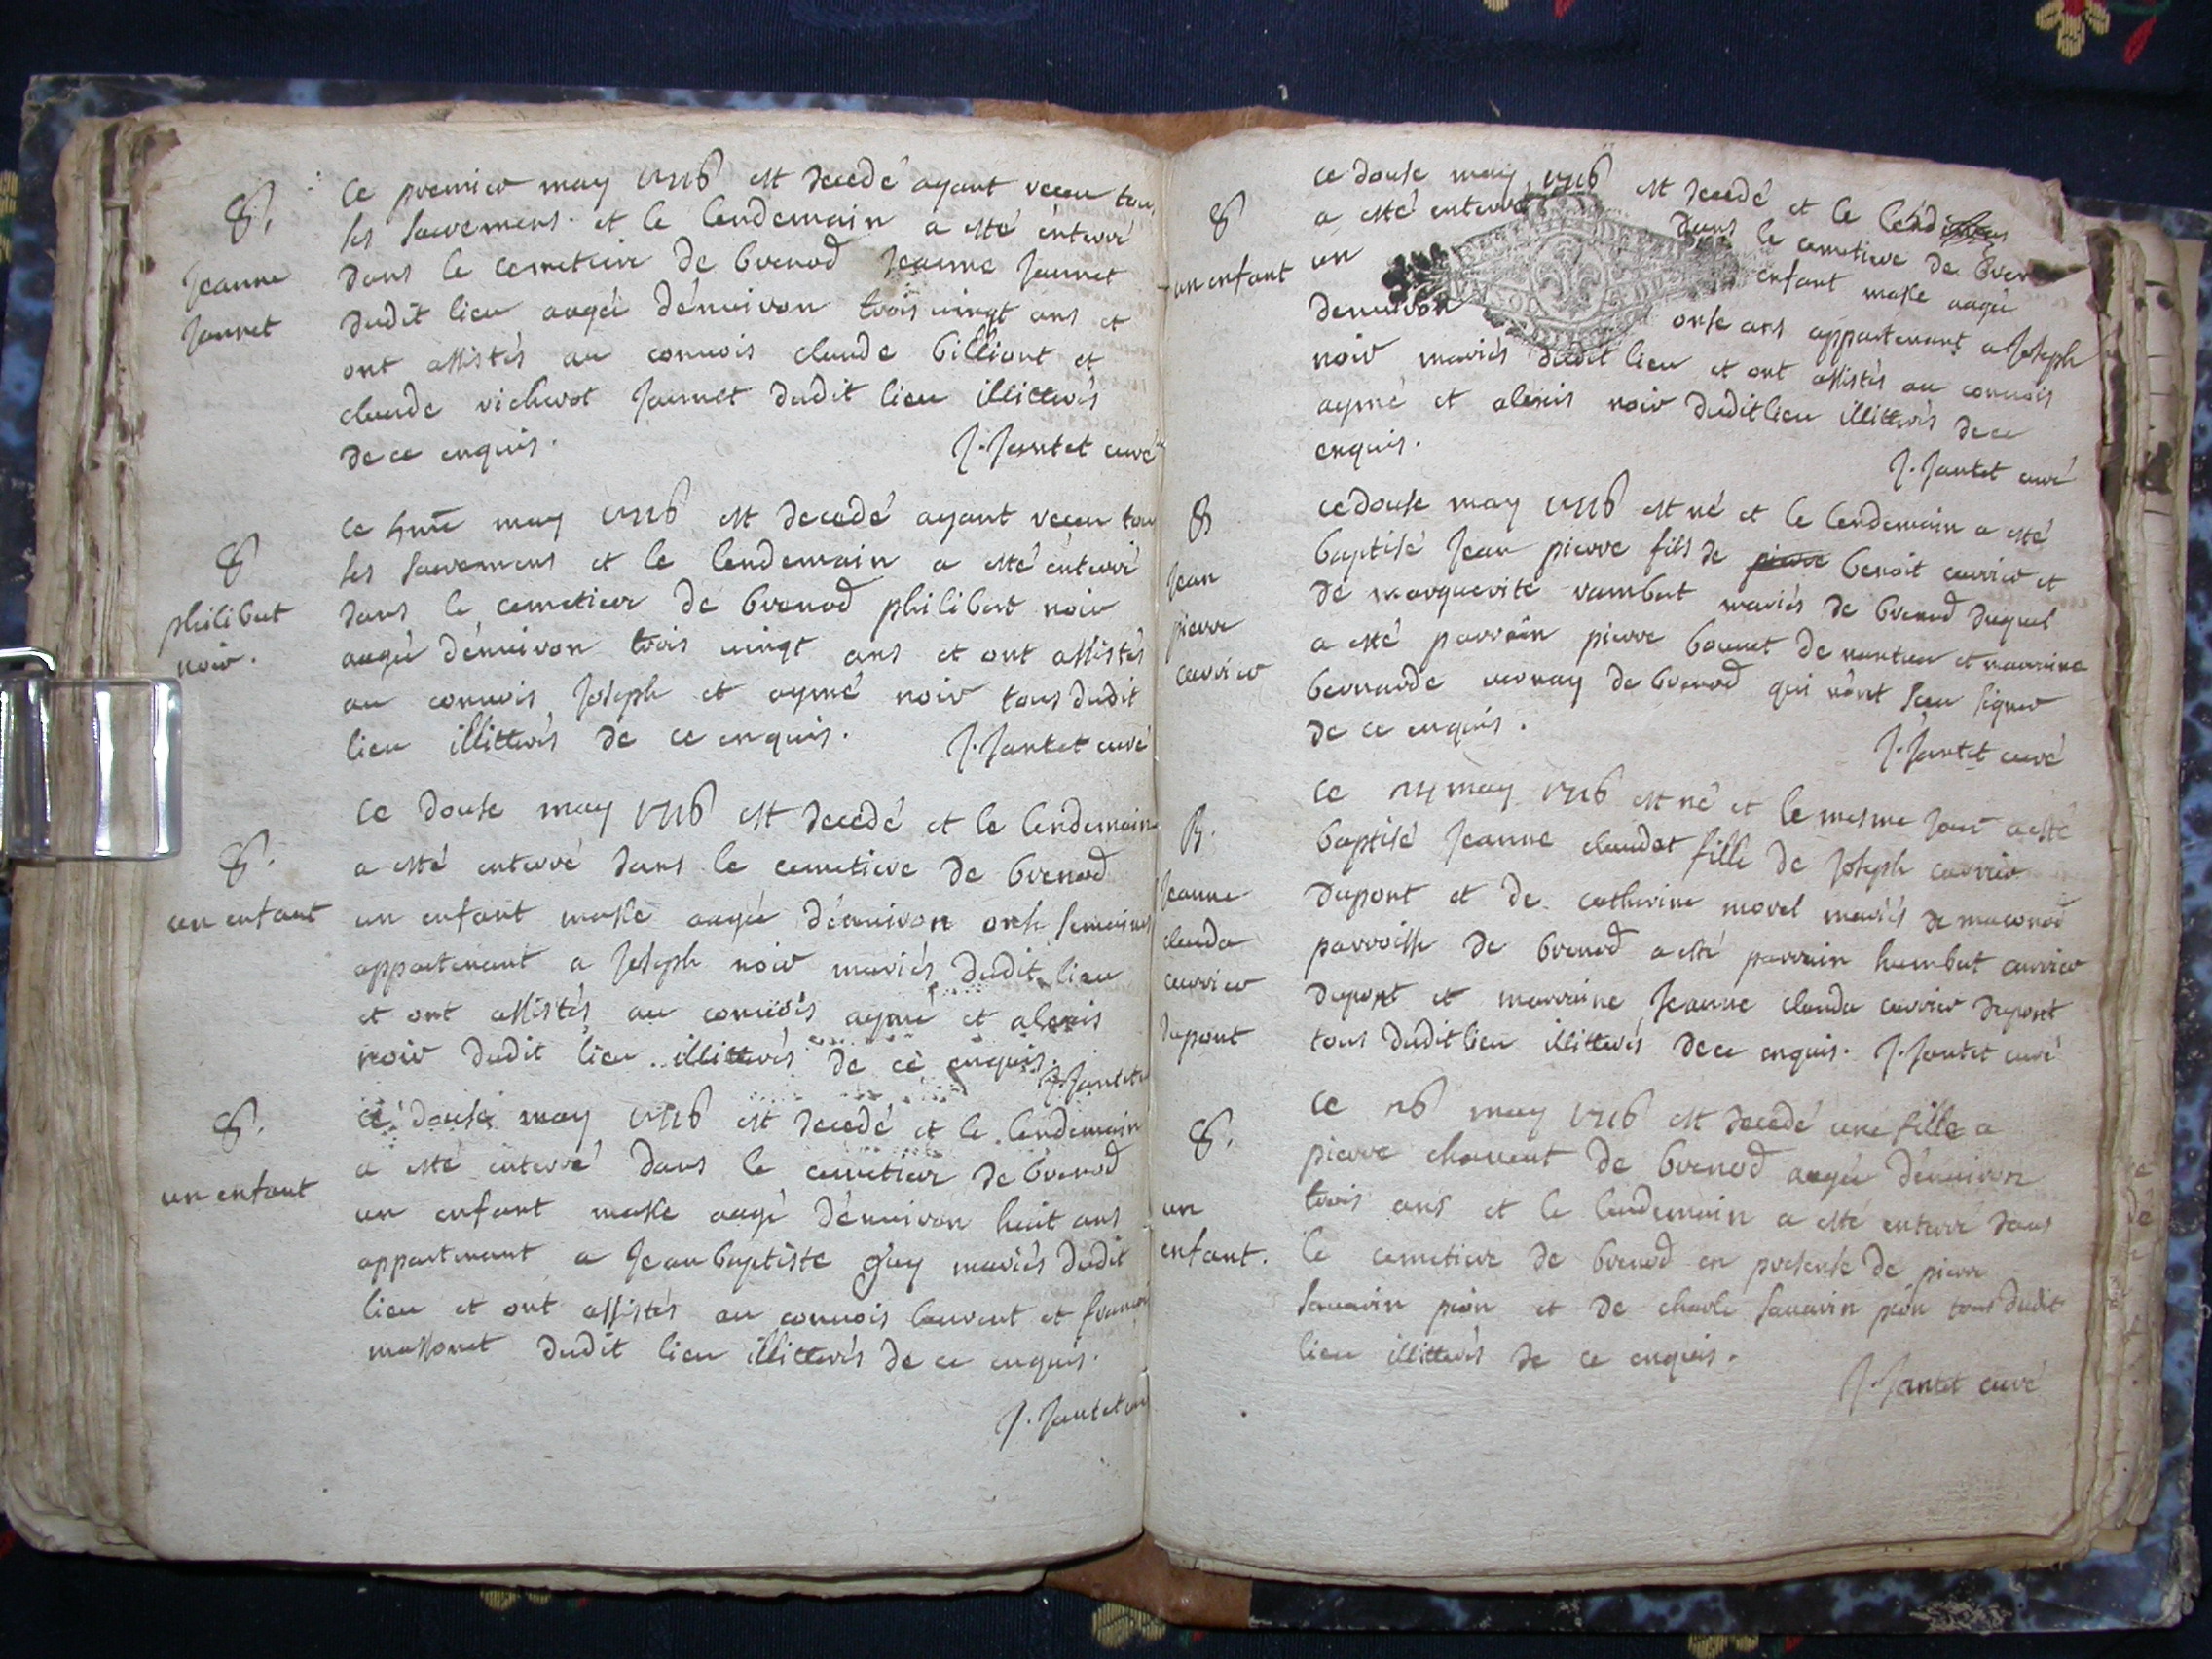 S.
Jeanne
Jannet
Ce premier may 1716 est decedé ayant receu tous
ses sacremens et le lendemain a esté enterré
dans le cemetiere de brenod Jeanne Jannet
dudit lieu aagée dénuiron trois uingt ans et
ont assistés au conuois claude billiont et
claude vicherot Jannet dudit lieu illitterés
de ce enquis.
J. Jantet curé
S
philibert
noir.
Ce may 1716 est decedé ayant receu tous
ses sacremens et le lendemain a esté enterré
dans le cemetiere de brenod philibert noir
aagé dénuiron trois uingt ans et ont assistés
au conuois Joseph et aymé noir tous dudit
lieu illitterés de ce enquis.
J. Jantet curé
S.
un enfant
Ce douse may 1716 est decedé et le lendemain
a esté enterré dans le cemetiere de brenod
un enfant masle aagée dénuiron onse semaines
appartenant a Joseph noir mariés dudit lieu
et ont assistés au conuois aymé et alexis
noir dudit lieu illitterés de ce enquis.
J. Jantet
S.
un enfant
ce douse may 1716 est decedé et le lendemain
a esté enterré dans le cemetiere de brenod
un enfant masle aagé dénuiron huit ans
appartenant a Jean baptiste guy mariés dudit
lieu et ont assistés au conuois laurent et francois
massonet dudit lieu illitterés de ce enquis.
J. Jantet curé
S
un enfant
ce douse may 1716 est decedé et le
a esté enterré dans le cemetiere de bren
un enfant masle aagée
denuiron onse ans appartenant a Joseph
noir mariés dudit lieu et ont assistés au conuois
aymé et alexis noir dudit lieu illitterés de ce
enquis.
J. Jantet curé
B
Jean
pierre
carrier
ce douse may 1716 est né et le lendemain a esté
baptisé Jean pierre fils de pierre benoit carrier et
de marguerite rambert mariés de brenod duquel
a esté parrain pierre bonnet de nantua et marraine
bernarde uernay de brenod qui n'ont sceu signer
de ce enquis.
J. Jantet curé
B.
Jeanne
clauda
carrier
dupont
Ce 14 may 1716 est né et le mesme jour a esté
baptisé Jeanne claudat fille de Joseph carrier
dupont et de catherine morel mariés de maconod
parroisse de brenod a esté parrain humbert carrier
dupont et marraine Jeanne clauda carrier dupont
tous dudit lieu illitterés de ce enquis. J. Jantet curé
S.
un
enfant.
Ce 16 may 1716 est decedé une fille a
pierre chauent de brenod aagée dénuiron
trois ans et le lendemain a esté enterré dans
le cemetiere de brenod en presense de pierre
sauarin pion et de charle sauarin pion tous dudit
lieu illitterés de ce enquis.
J. Jantet curé